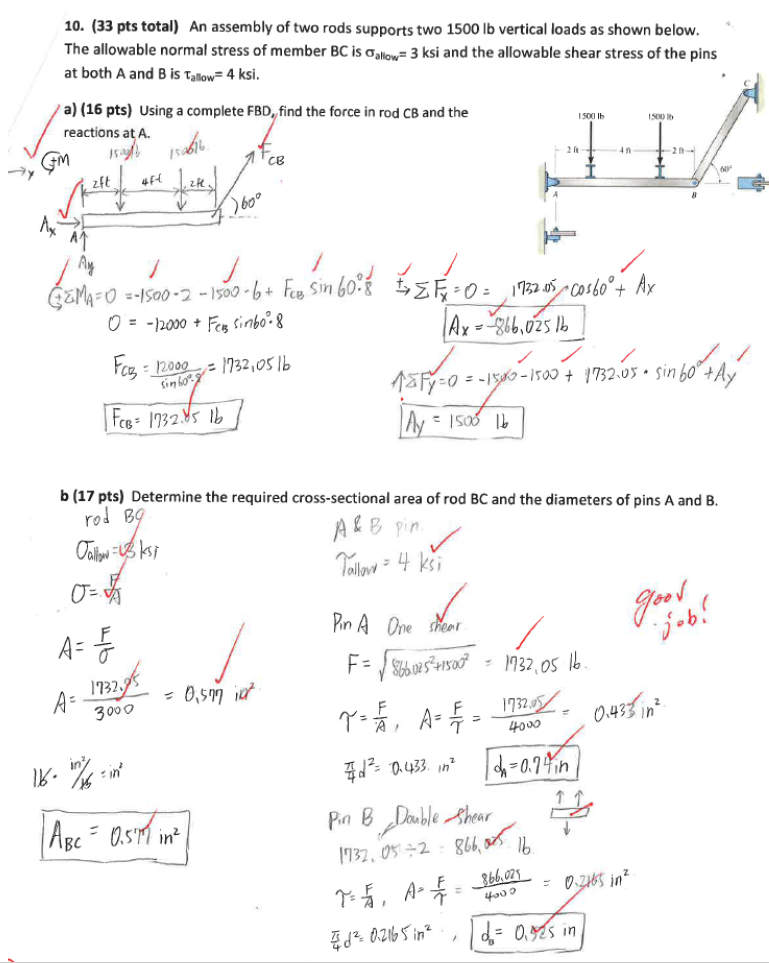 10. (33 pts total) An assembly of two rods supports two 1500 lb vertical loads as shown below.
The allowable normal stress of member BC is σallow= 3 ksi and the allowable shear stress of the pins
at both A and B is τallow= 4 ksi.
a) (16 pts) Using a complete FBD, find the force in rod CB and the
reactions at A.
1500 lb 1500 lb
2 ft 4 ft 2 ft
60°
A B C
M
x
1500lb 1500lb FCB
2ft 4ft 2ft
60°
Ax A
Ay
ΣMA=0 =-1500·2 -1500·6+ FCB sin60°·8
0 = -12000 + FCB sin60°·8
FCB = 12000 / sin60°·8 = 1732,05 lb
FCB= 1732.05 lb
+→ ΣFx=0= 1732.05 · cos60°+ Ax
Ax = -866,025 lb
↑ΣFy=0 = -1500-1500+ 1732.05 · sin60°+Ay
Ay = 1500 lb
b (17 pts) Determine the required cross-sectional area of rod BC and the diameters of pins A and B.
rod BC
σallow=3 ksi
σ= F/A
A= F/σ
A= 1732.05/3000 = 0,577 in²
lb· in²/lb = in²
ABC = 0.577 in²
A & B pin
τallow = 4 ksi
Pin A One shear
F= √866.025²+1500² = 1732,05 lb.
τ= F/A, A= F/τ = 1732.05/4000 = 0.433 in²
π/4 d²= 0.433. in² dA=0.74in
Pin B Double shear
1732,05 ÷2 = 866,025 lb
τ= F/A, A= F/τ = 866.025/4000 = 0.2165 in²
π/4 d²= 0.2165 in², dB= 0.525 in
good
job!